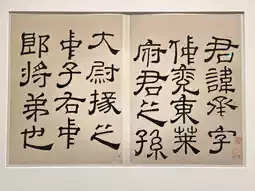 君諱承字
仲兗東萊
府君之孫
大尉掾之
中子右中
郎將弟也